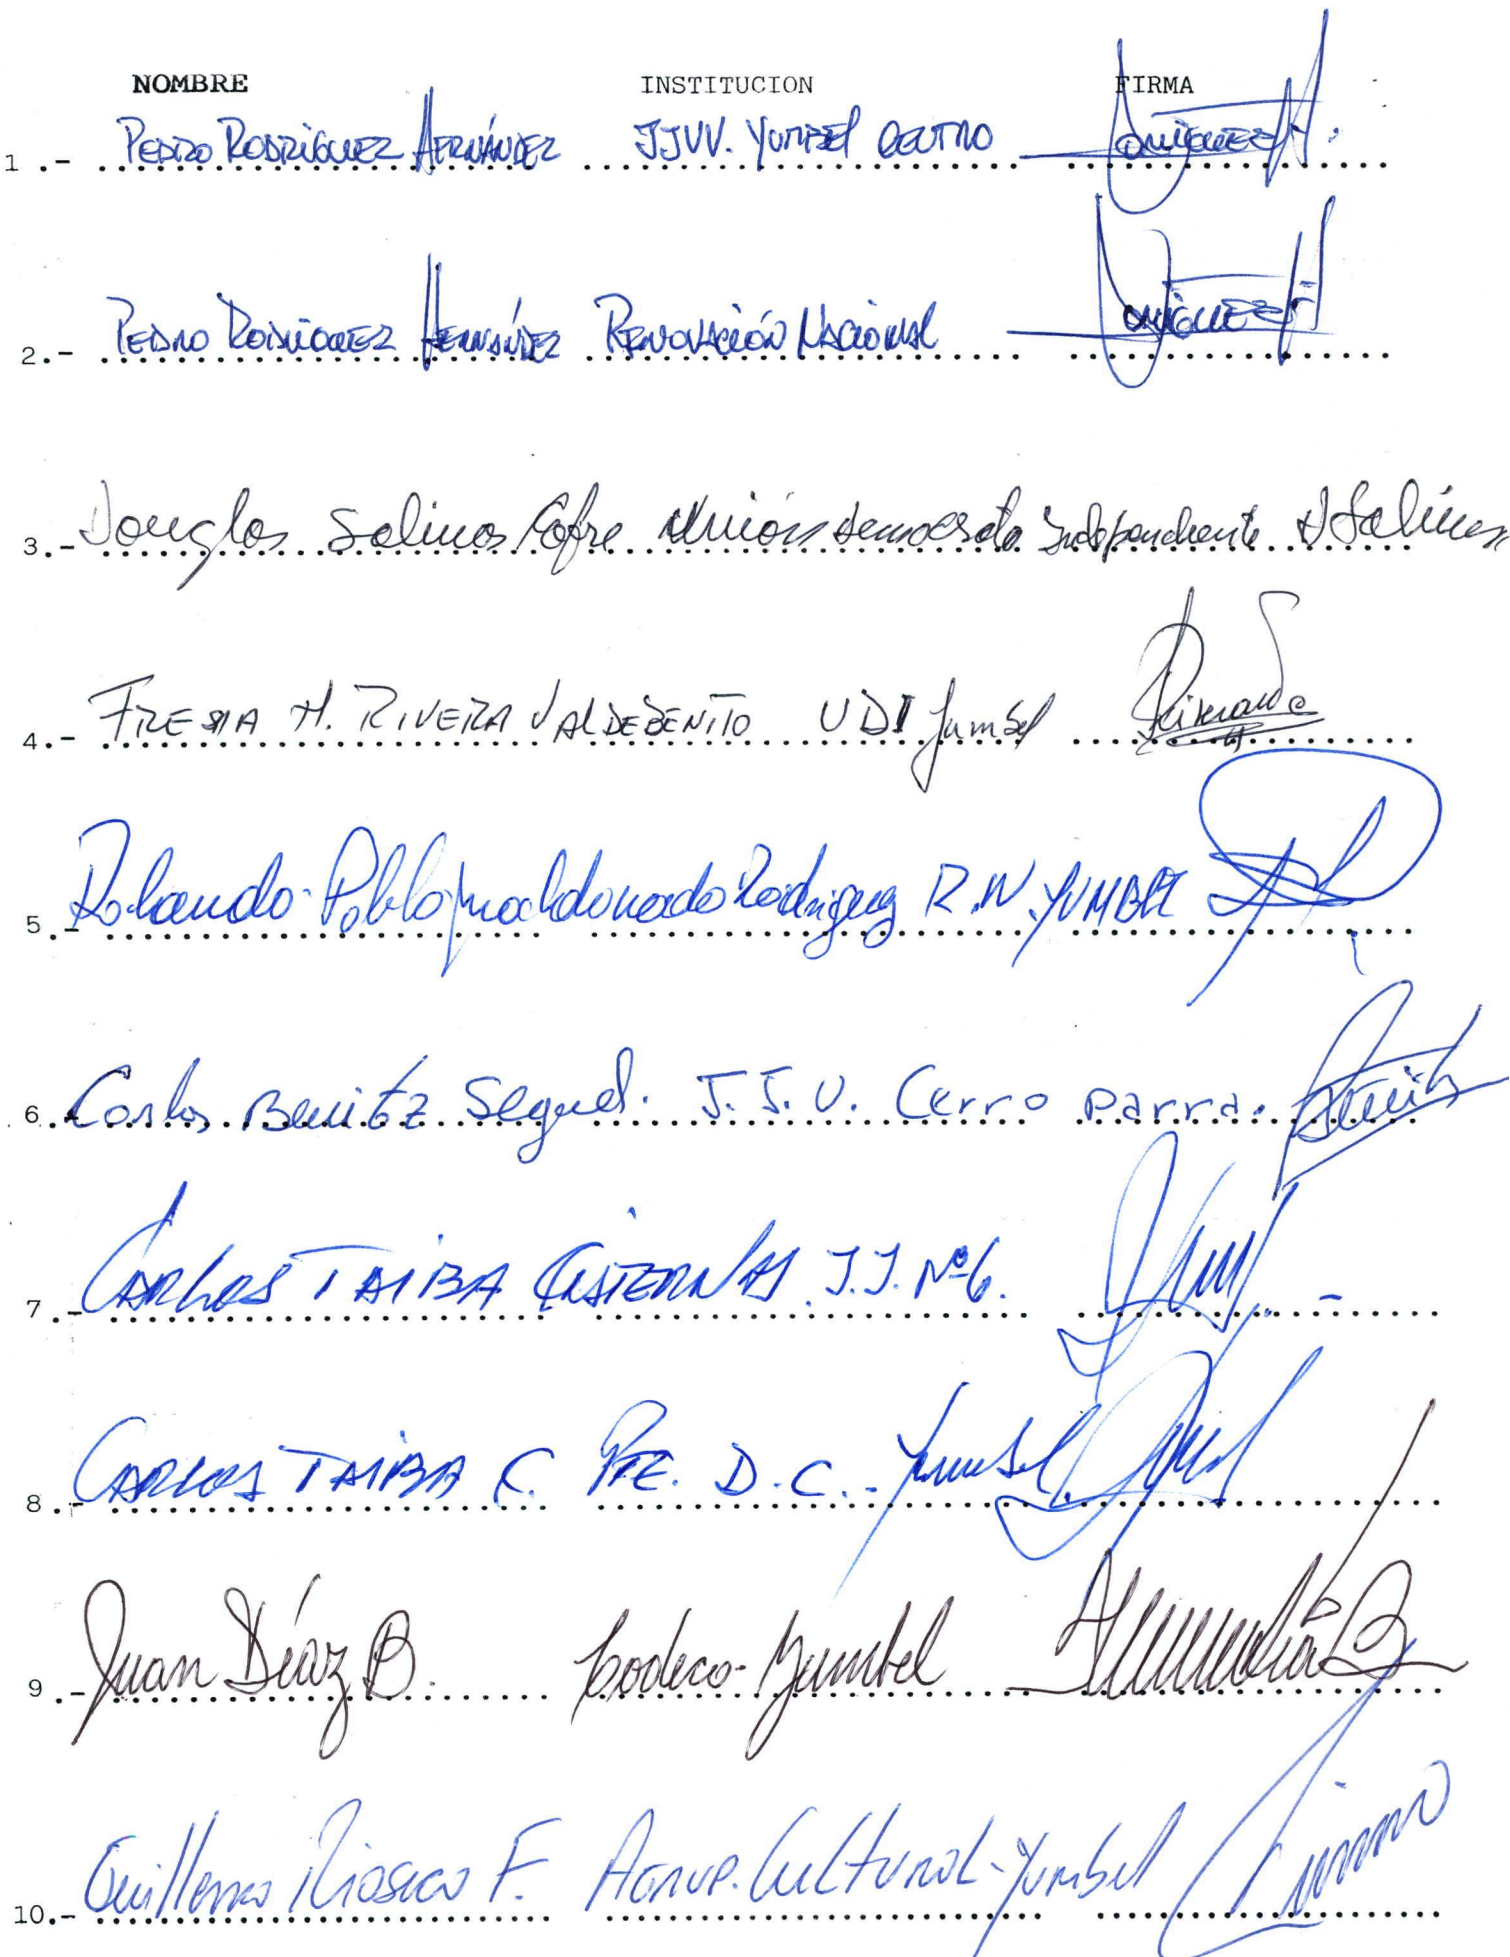 NOMBRE INSTITUCION FIRMA
1.- PEDRO RODRÍGUEZ HERNÁNDEZ JJVV. YUMBEL CENTRO
2.- PEDRO RODRÍGUEZ HERNÁNDEZ RENOVACIÓN NACIONAL
3.- Douglas Salinas Cofre Unión Democrata Independiente D Salinas
4.- FRESIA H. RIVERA VALDEBENITO UDI Yumbel
5.- Rolando Pablo Maldonado Rodriguez R.N. YUMBEL
6.- Carlos Benitez Seguel. J.J.V. Cerro Parra.
7.- CARLOS TAIBA CISTERNAS J.J. Nº6.
8.- CARLOS TAIBA C. PTE. D.C. Yumbel.
9.- Juan Díaz B. Codeco-Yumbel
10.- Guillermo F. Agrup. Cultural-Yumbel